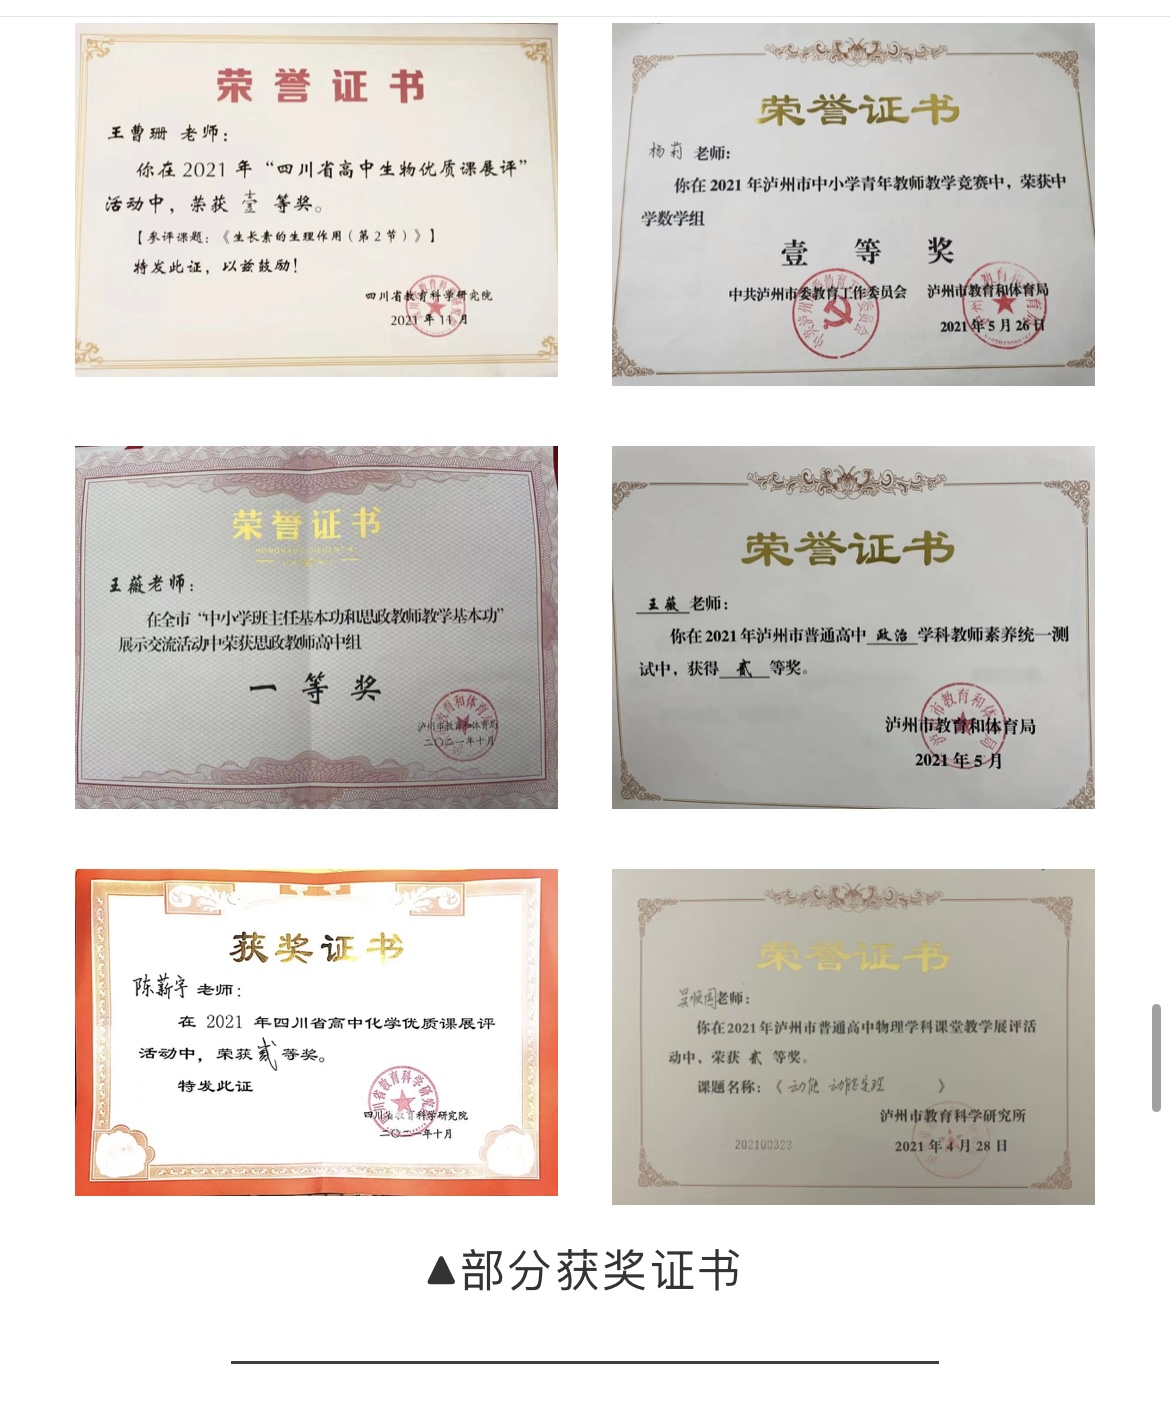 荣誉证书
王曹珊 老师：
你在 2021 年“四川省高中生物优质课展评”
活动中，荣获 壹 等奖。
【参评课题：《生长素的生理作用（第 2 节）》】
特发此证，以兹鼓励！
四川省教育科学研究院
2021 年 11 月
荣誉证书
杨莉 老师：
你在 2021 年泸州市中小学青年教师教学竞赛中，荣获中
学数学组
壹 等 奖
中共泸州市委教育工作委员会 泸州市教育和体育局
2021 年 5 月 26 日
荣誉证书
HONORARY CREDENTIAL
王薇老师：
在全市“中小学班主任基本功和思政教师教学基本功”
展示交流活动中荣获思政教师高中组
一 等 奖
泸州市教育和体育局
二〇二一年十月
荣誉证书
王薇 老师：
你在 2021 年泸州市普通高中 政治 学科教师素养统一测
试中，获得 贰 等奖。
泸州市教育和体育局
2021 年 5 月
获奖证书
陈薪宇 老师：
在 2021 年四川省高中化学优质课展评
活动中，荣获 贰 等奖。
特发此证
四川省教育科学研究院
二〇二一年十月
荣誉证书
老师：
你在2021年泸州市普通高中物理学科课堂教学展评活
动中，荣获 贰 等奖。
课题名称：《 动能 动能定理 》
泸州市教育科学研究所
202100323
2021 年 4 月 28 日
▲部分获奖证书